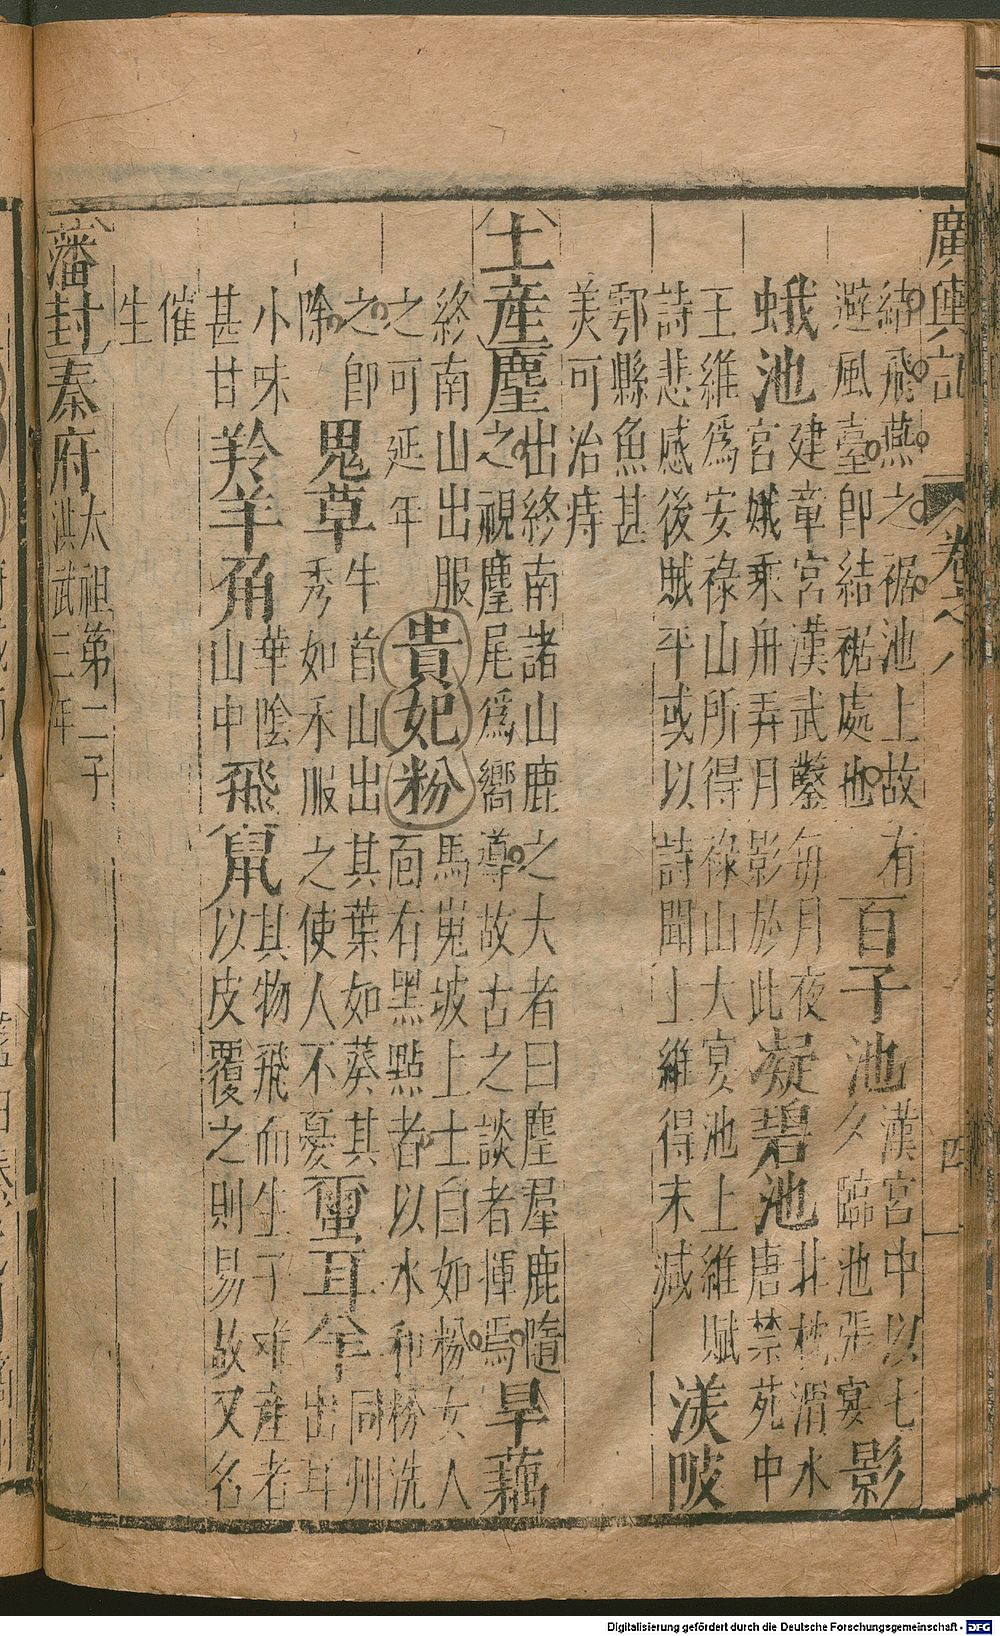 廣輿記 卷之八 四
結飛燕之裾池上故有
避風臺即結裾處也
百子池
漢宮中以七
夕臨池張宴
影
蛾池
建章宮漢武鑿每月夜
宮娥乘舟弄月影於此
凝碧池
北枕渭水
唐禁苑中
王維爲安祿山所得祿山大宴池上維賦
詩悲感後賊平或以詩聞上維得末減
渼陂
鄠縣魚甚
美可治痔
土產麈
出終南諸山鹿之大者曰麈羣鹿隨
之視麈尾爲嚮導故古之談者揮焉
旱藕
終南山出服
之可延年
貴妃粉
馬嵬坡上土白如粉女人
面有黑點者以水和粉洗
之即
除
鬼草
牛首山出其葉如葵其
秀如禾服之使人不憂
耳羊
同州
出耳
小味
甚甘
羚羊角
華陰
山中
飛鼠
其物飛而生子难產者
以皮覆之則易故又名
催
生
藩封秦府
太祖第二子
洪武三年
Digitalisierung gefördert durch die Deutsche Forschungsgemeinschaft - DFG